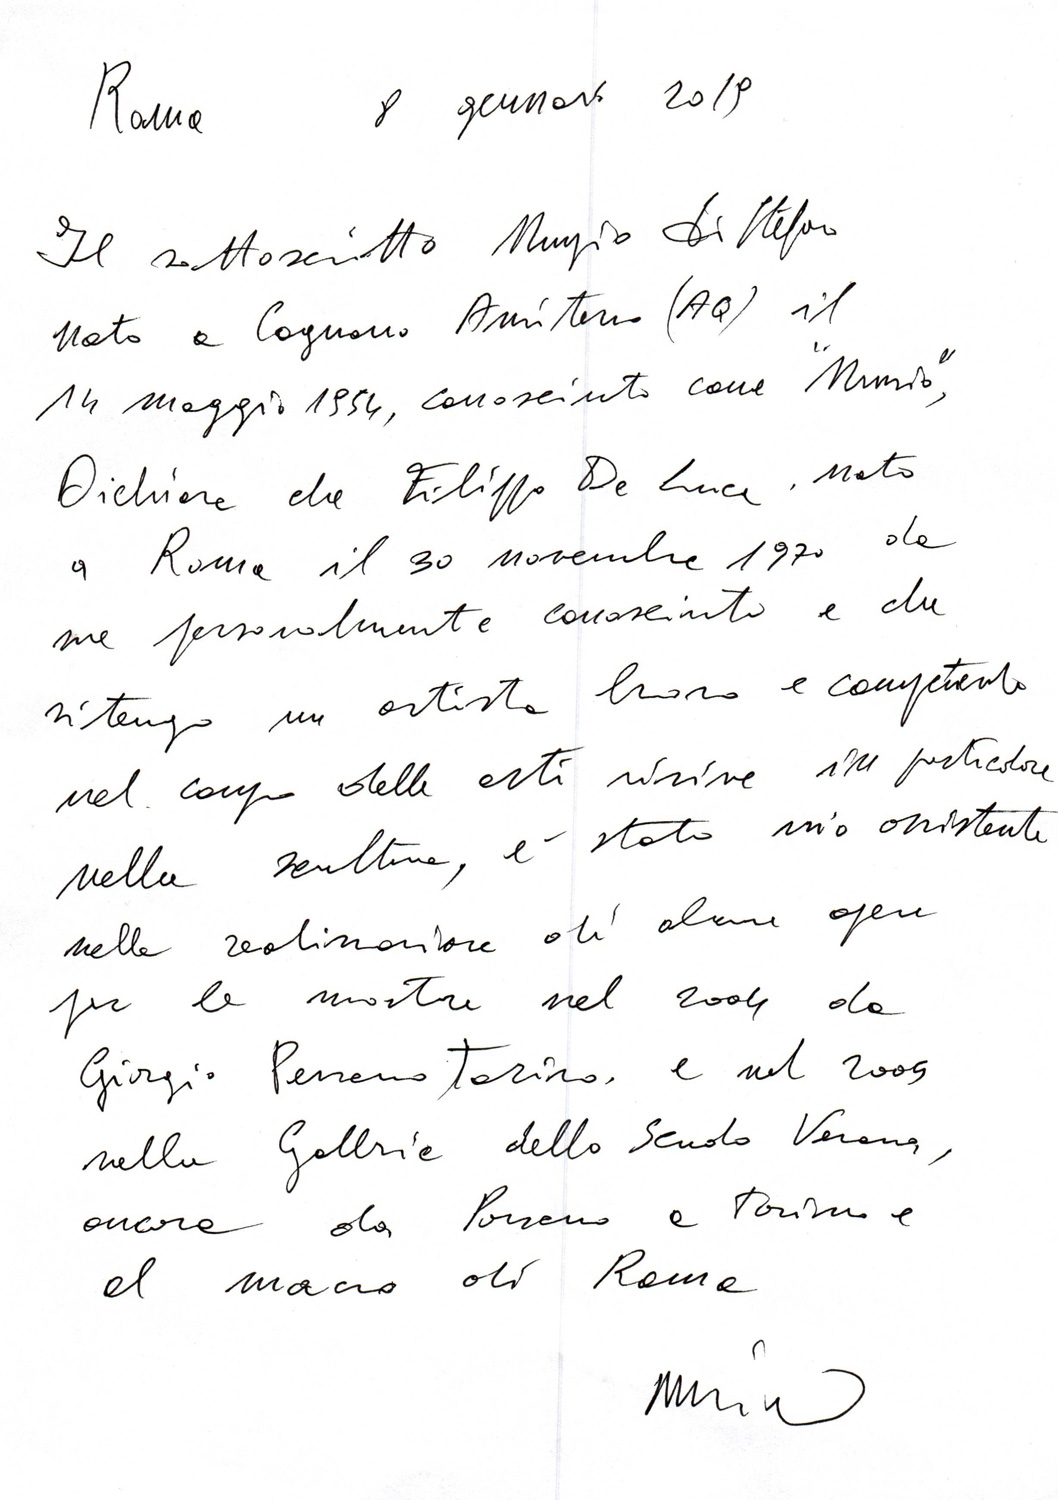 Roma 8 gennaio 2019
Il sottoscritto Nunzio Di Stefano
nato a Cagnano Amiterno (AQ) il
14 maggio 1954, conosciuto come "Nunzio",
Dichiara che Filippo De Luca, nato
a Roma il 30 novembre 1970 da
me personalmente conosciuto e che
ritengo un artista bravo e competente
nel campo delle arti visive in particolare
nella scultura, è stato mio assistente
nella realizzazione di alcune opere
per le mostre nel 2004 da
Giorgio Persano Torino, e nel 2005
nella Galleria dello Scudo Verona,
ancora da Persano a Torino e
al macro di Roma
Nunzio